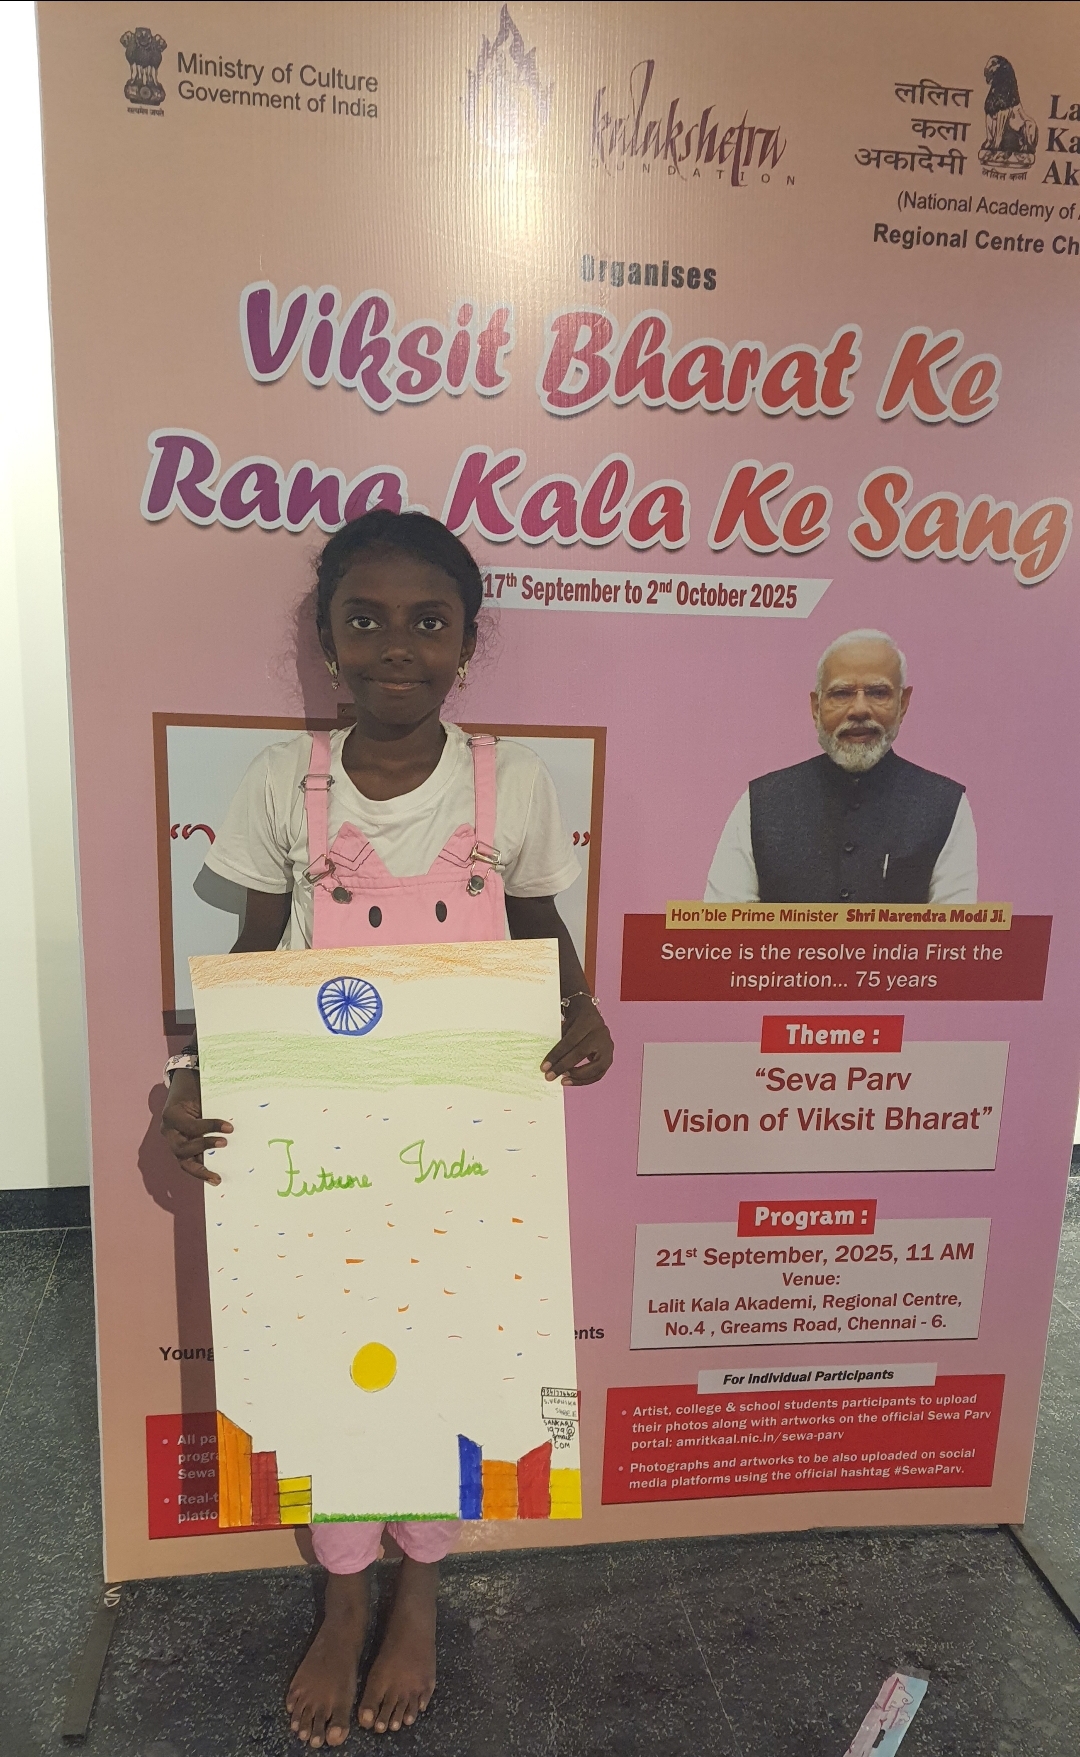 Ministry of Culture
Government of India
सत्यमेव जयते
kalakshetra
UNDATION
ललित
कला
अकादेमी
ललित कला
La
Ka
Ak
(National Academy of
Regional Centre Ch
Organises
Viksit Bharat Ke
Rang Kala Ke Sang
17th September to 2nd October 2025
“
”
Hon'ble Prime Minister Shri Narendra Modi Ji.
Service is the resolve india First the
inspiration... 75 years
Theme :
“Seva Parv
Vision of Viksit Bharat”
Program :
21st September, 2025, 11 AM
Venue:
Lalit Kala Akademi, Regional Centre,
No.4 , Greams Road, Chennai - 6.
For Individual Participants
• Artist, college & school students participants to upload
their photos along with artworks on the official Sewa Parv
portal: amritkaal.nic.in/sewa-parv
• Photographs and artworks to be also uploaded on social
media platforms using the official hashtag #SewaParv.
Young
ents
• All pa
progr
Sewa
• Real-t
platfo
Future India
SHREE
SANKARI
1979@
gmail.
COM
VD